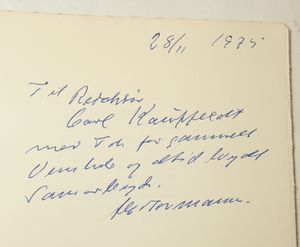 28/11 1975
Til
Redaktør
Carl
med Tak for gammelt
Venskab og altid loyalt
Samarbejde.